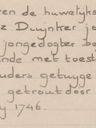 en de huwelijks
z Duynker j
jongedogter b
nde met toest
uders getuyge
getroutdoor
y 1746.